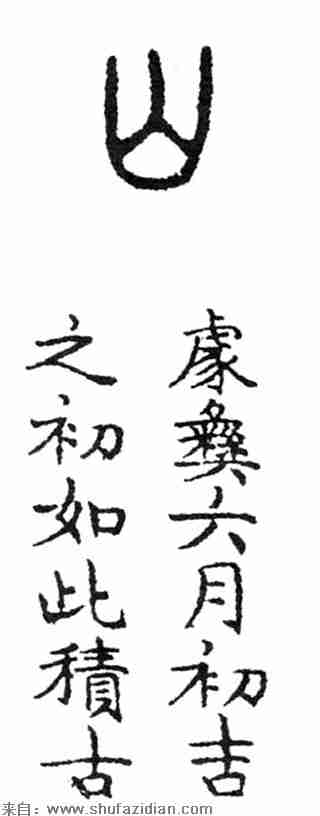 豦彝六月初吉
之初如此積古
来自：www.shufazidian.com